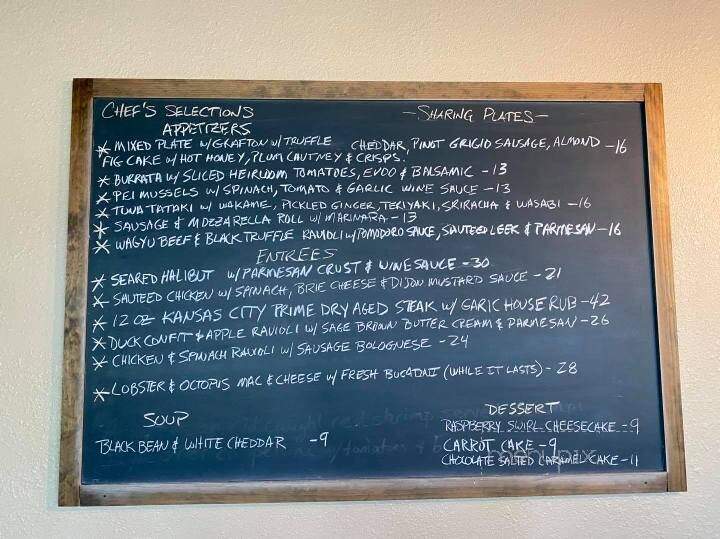 CHEF'S SELECTIONS
—SHARING PLATES—
APPETIZERS
* MIXED PLATE W/GRAFTON W/TRUFFLE CHEDDAR, PINOT GRIGIO SAUSAGE, ALMOND -16
FIG CAKE W/ HOT HONEY, PLUM CHUTNEY & CRISPS.
* BURRATA W/ SLICED HEIRLOOM TOMATOES, EVOO & BALSAMIC -13
* PEI MUSSELS W/ SPINACH, TOMATO & GARLIC WINE SAUCE -13
* TUNA TATAKI W/ WAKAME, PICKLED GINGER, TERIYAKI, SRIRACHA & WASABI -16
* SAUSAGE & MOZZARELLA ROLL W/ MARINARA -13
* WAGYU BEEF & BLACK TRUFFLE RAVIOLI W/POMODORO SAUCE, SAUTEED LEEK & PARMESAN -16
ENTREES
* SEARED HALIBUT W/ PARMESAN CRUST & WINE SAUCE -30
* SAUTEED CHICKEN W/ SPINACH, BRIE CHEESE & DIJON MUSTARD SAUCE -21
* 12 OZ KANSAS CITY PRIME DRY AGED STEAK W/ GARIC HOUSE RUB -42
* DUCK CONFIT & APPLE RAVIOLI W/ SAGE BROWN BUTTER CREAM & PARMESAN -26
* CHICKEN & SPINACH RAVIOLI W/ SAUSAGE BOLOGNESE -24
* LOBSTER & OCTOPUS MAC & CHEESE W/ FRESH BUCATINI (WHILE IT LASTS) - 28
SOUP
BLACK BEAN & WHITE CHEDDAR -9
DESSERT
RASPBERRY SWIRL CHEESECAKE -9
CARROT CAKE -9
CHOCOLATE SALTED CARAMEL CAKE -11